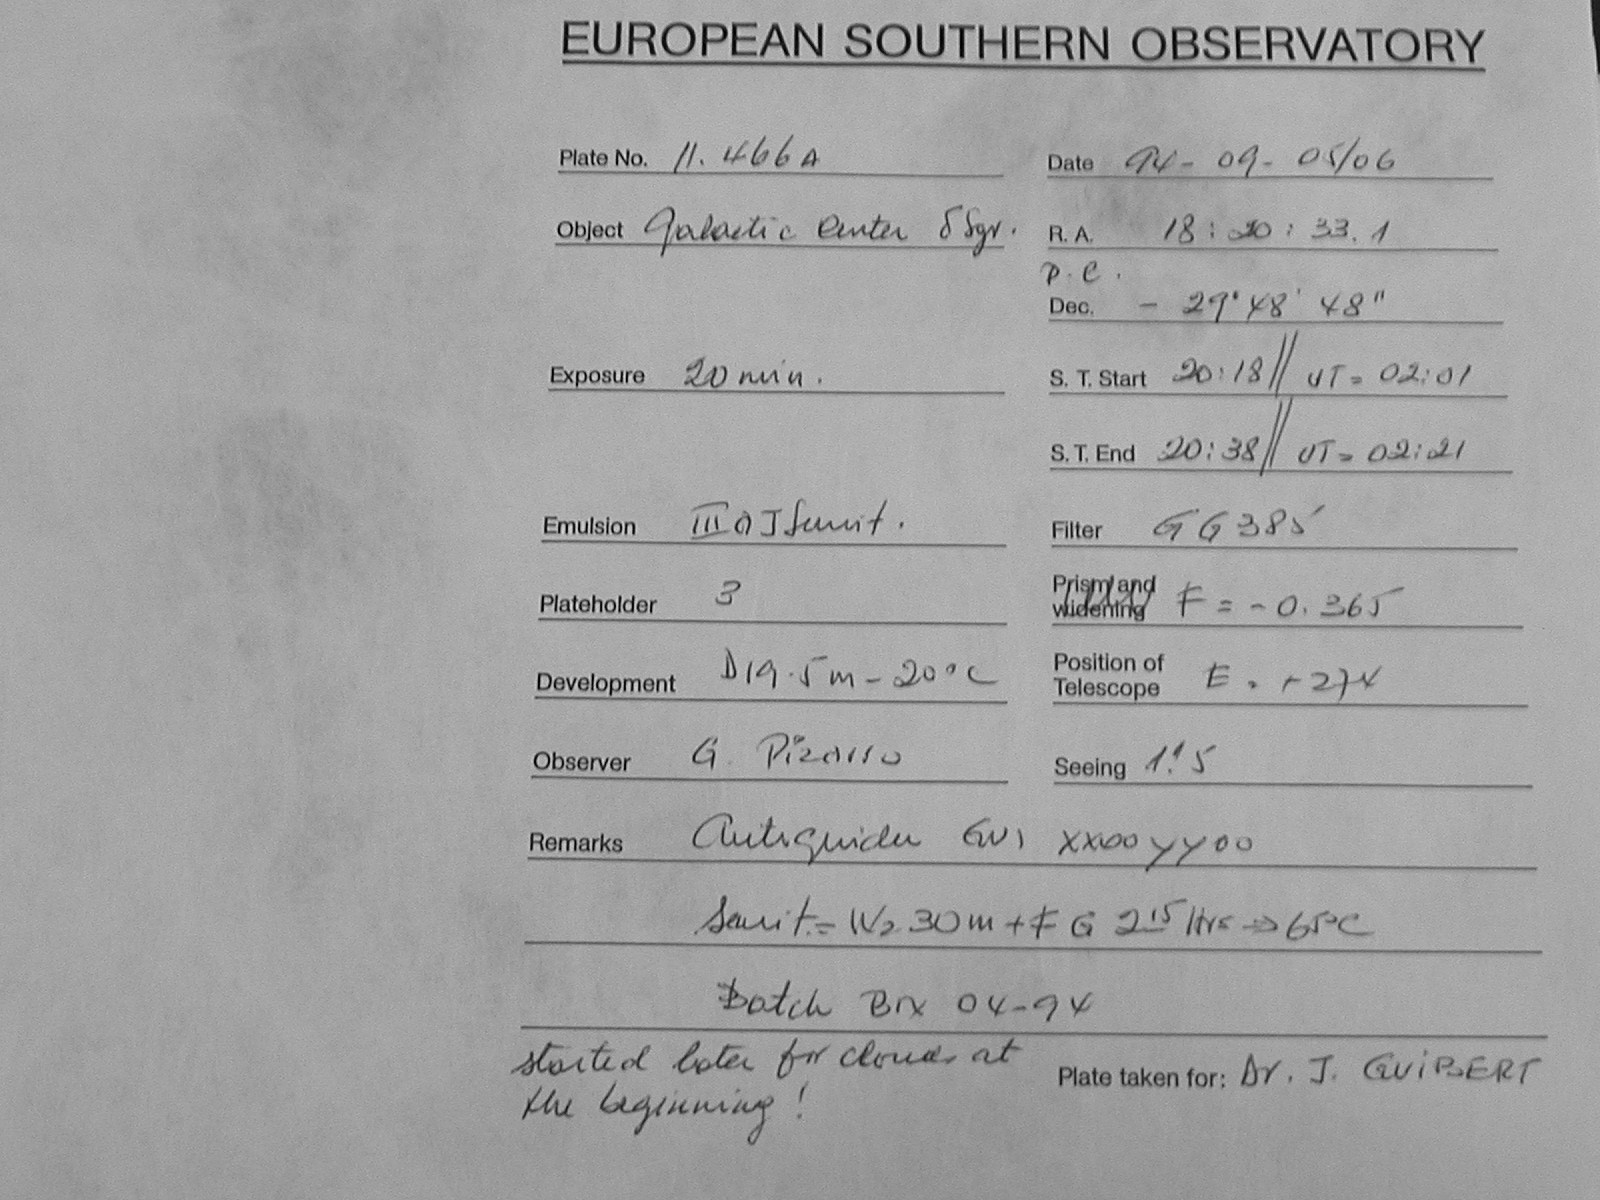 EUROPEAN SOUTHERN OBSERVATORY
Plate No. 11.466A Date 94-09-05/06
Object Galactic Center δ Sgr. R. A. 18:20:33.1
P.C.
Dec. - 29°48' 48"
Exposure 20 min. S. T. Start 20:18// UT= 02:01
S. T. End 20:38// UT= 02:21
Emulsion III a J Sensit. Filter GG385
Plateholder 3 Prism and widening F = -0.365
Development D19.5m-20°C Position of Telescope E. +274
Observer G. Pizarro Seeing 1".5
Remarks Autoguider GV1 XX00 YY00
Sensit.= N2 30m + FG 2 15 Hrs → 65°C
Batch Bix 04-94
started later for clouds at
the beginning!
Plate taken for: Dr. J. GUIBERT